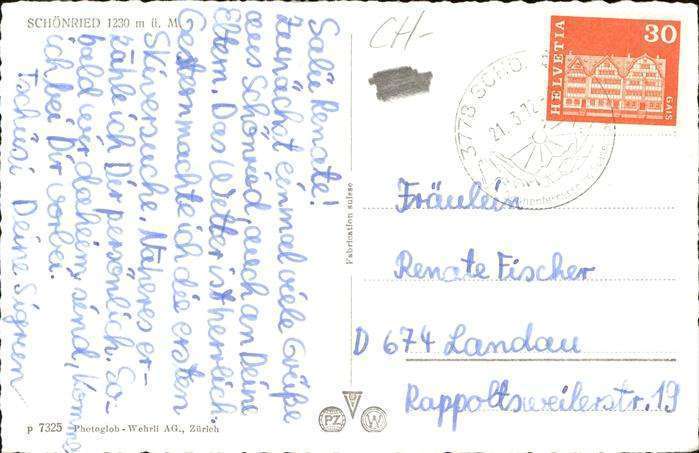 SCHÖNRIED 1230 m ü. M.
Salü Renate!
Zunächst einmal viele Grüße
aus Schönried, auch an Deine
Eltern. Das Wetter ist herrlich.
Gestern machte ich die ersten
Skiversuche. Näheres er-
zähle ich Dir persönlich. So-
bald wir daheim sind, komme
ich bei Dir vorbei.
Tschüsi Deine Sigrun
p 7325 Photoglob-Wehrli AG., Zürich
Fabrication suisse
PZ
W
CH-
3778 SCHÖ
21.3.7
HELVETIA
30
GAIS
Fräulein
Renate Fischer
D 674 Landau
Rappoltsweilerstr. 19